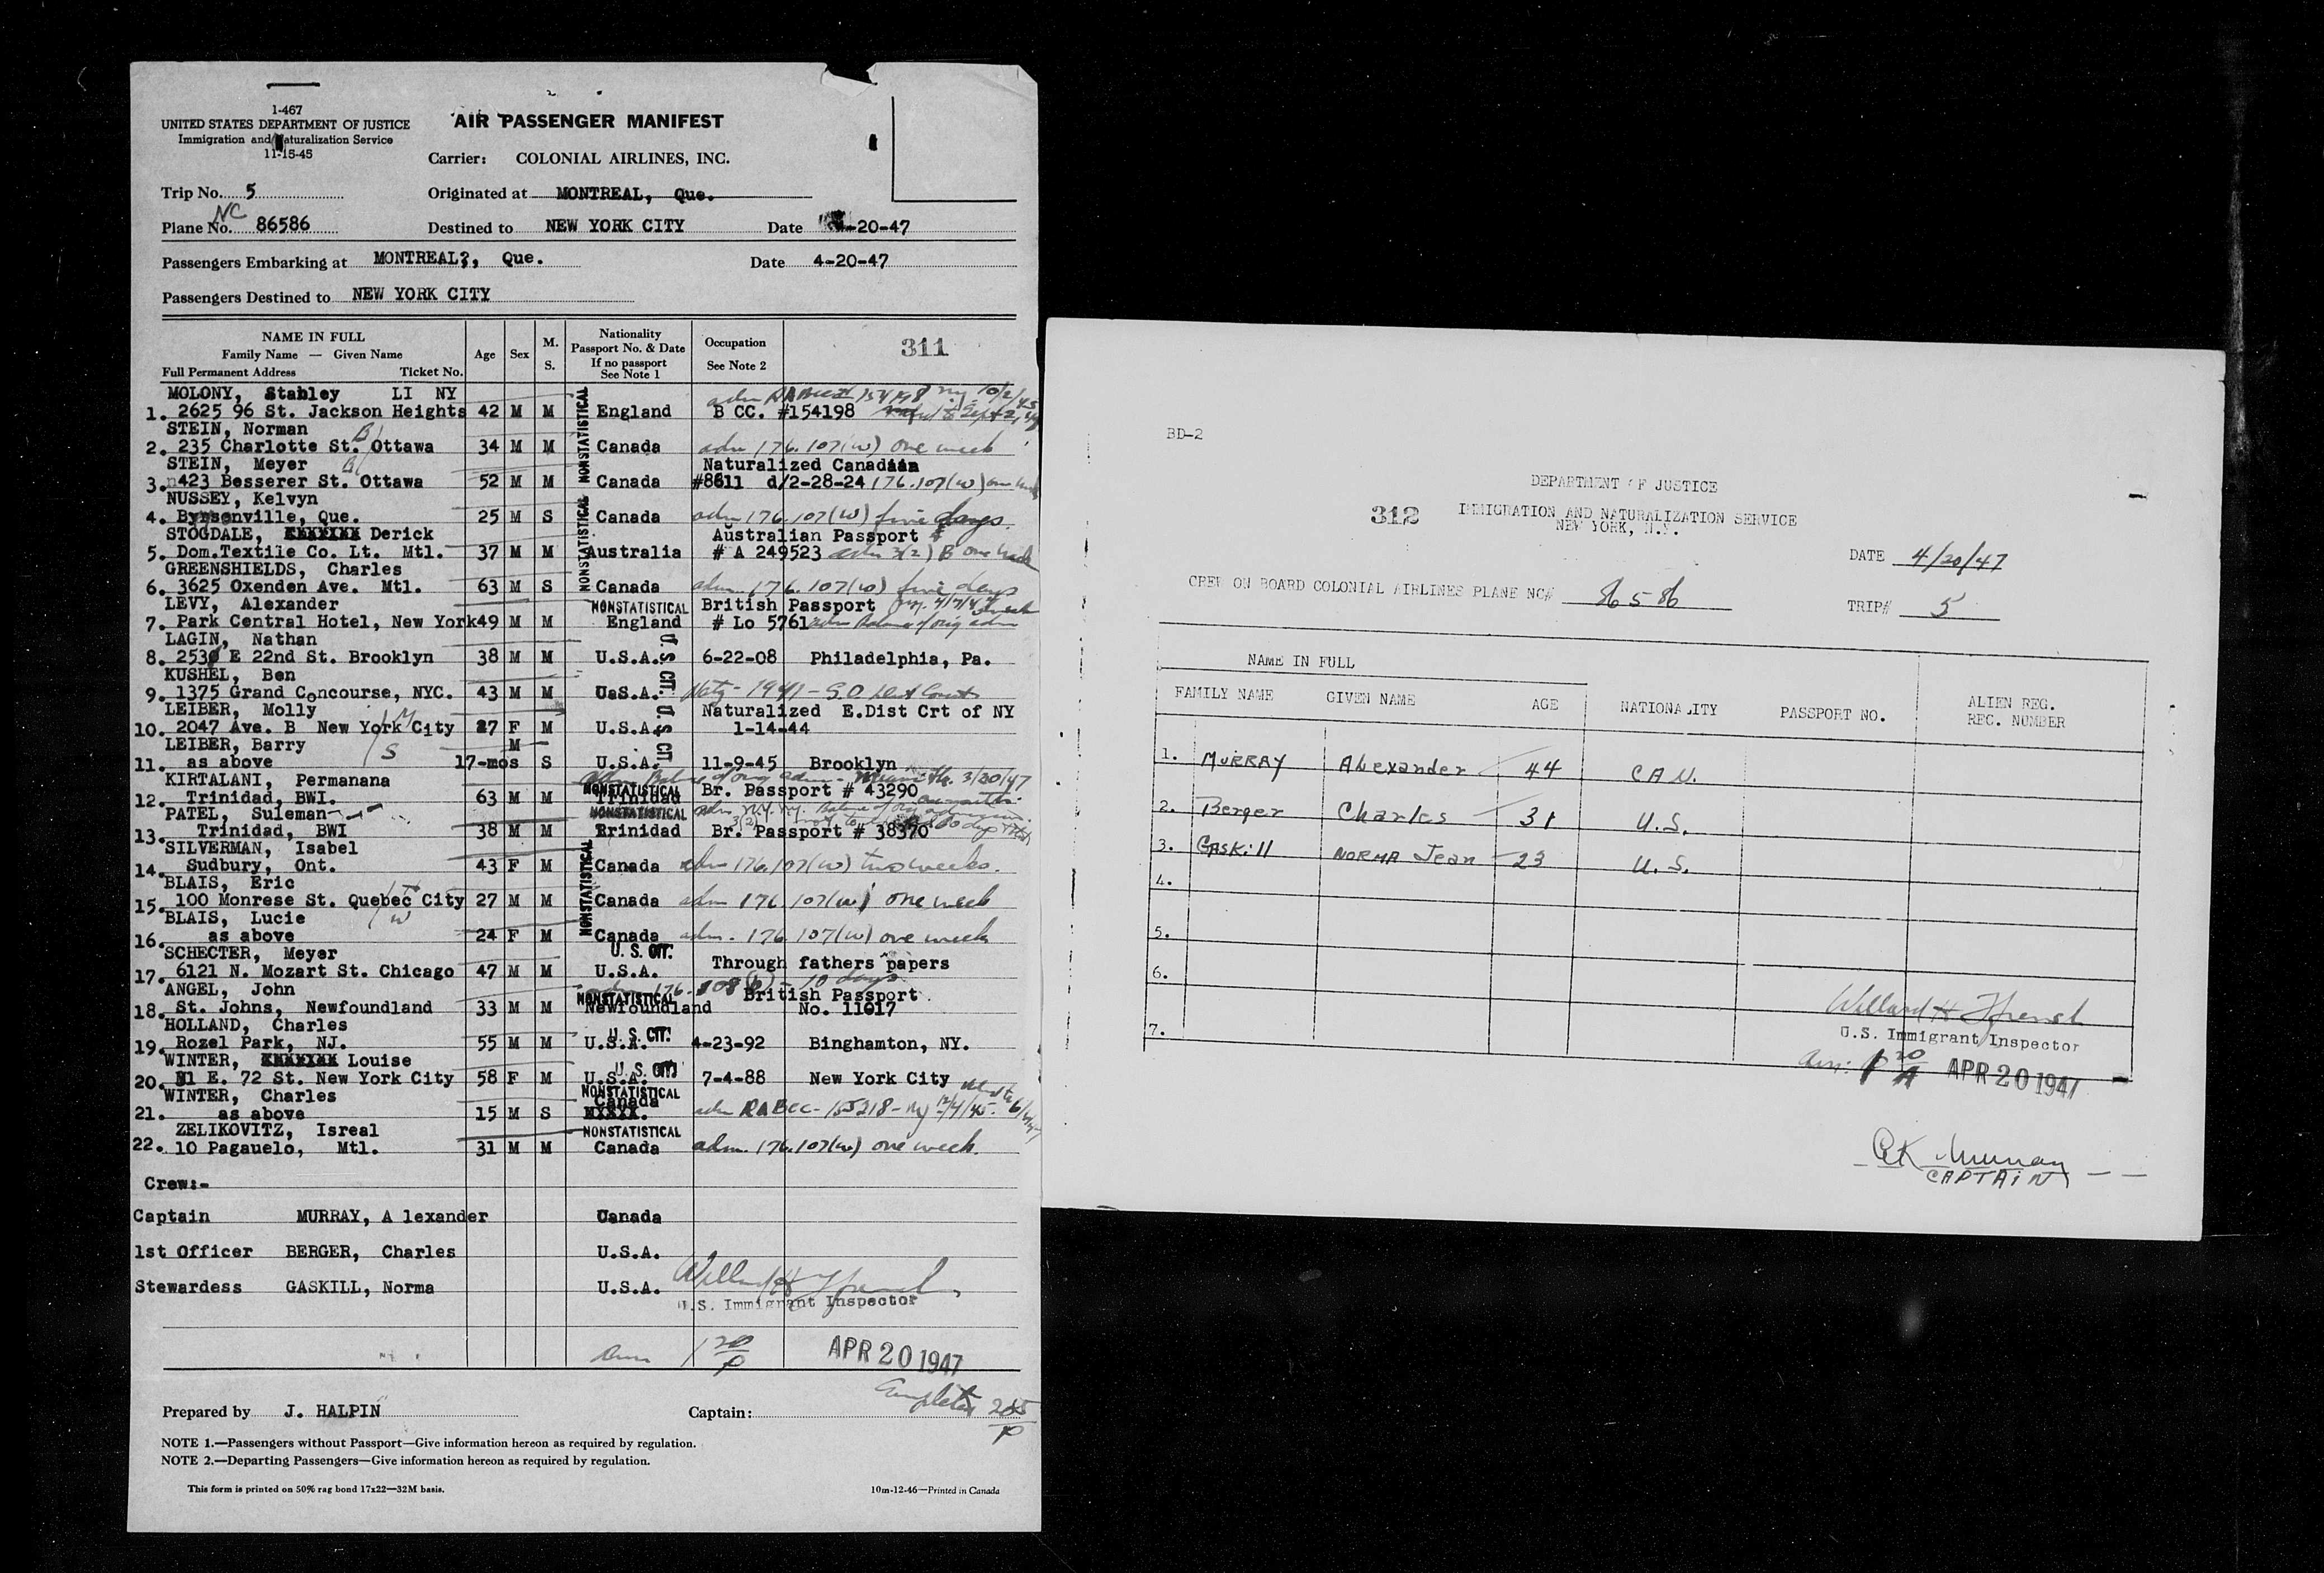 1-467
UNITED STATES DEPARTMENT OF JUSTICE
Immigration and Naturalization Service
11-15-45
AIR PASSENGER MANIFEST
Carrier: COLONIAL AIRLINES, INC.
Trip No. 5 Originated at MONTREAL, Que.
NC
Plane No. 86586 Destined to NEW YORK CITY Date -20-47
Passengers Embarking at MONTREAL?, Que. Date 4-20-47
Passengers Destined to NEW YORK CITY
NAME IN FULL
Family Name — Given Name
Full Permanent Address Ticket No.
Age
Sex
M.
S.
Nationality
Passport No. & Date
If no passport
See Note 1
Occupation
See Note 2
311
MOLONY, Stanley LI NY
1. 2625 96 St. Jackson Heights 42 M M NONSTATISTICAL England B CC. #154198
STEIN, Norman
2. 235 Charlotte St. Ottawa 34 M M Canada adm 176.107(w) one week
STEIN, Meyer Naturalized Canadian
3. 423 Besserer St. Ottawa 52 M M Canada #8611 d/2-28-24 176.107(w) one week
NUSSEY, Kelvyn
4. Bynsonville, Que. 25 M S NONSTATISTICAL Canada adm 176.107(w) five days
STOGDALE, XXXXXXX Derick Australian Passport
5. Dom.Textile Co. Lt. Mtl. 37 M M Australia # A 249523 adm 3(2) B one week
GREENSHIELDS, Charles
6. 3625 Oxenden Ave. Mtl. 63 M S Canada adm. 176.107(w) five days
LEVY, Alexander NONSTATISTICAL British Passport
7. Park Central Hotel, New York 49 M M England # Lo 5761 adm Balance of orig adm
LAGIN, Nathan
8. 2530 E 22nd St. Brooklyn 38 M M U.S.A. U.S. CIT. 6-22-08 Philadelphia, Pa.
KUSHEL, Ben
9. 1375 Grand Concourse, NYC. 43 M M UaS.A. Natz - 1941 - S.D. Dist Court
LEIBER, Molly Naturalized E.Dist Crt of NY
10. 2047 Ave. B New York City 27 F M U.S.A. U.S. CIT. 1-14-44
LEIBER, Barry M
11. as above 17-mos S U.S.A. 11-9-45 Brooklyn
KIRTALANI, Permanana NONSTATISTICAL Br. Passport # 43290
12. Trinidad, BWI. 63 M M Trinidad
PATEL, Suleman NONSTATISTICAL
13. Trinidad, BWI 38 M M Trinidad Br. Passport # 38370
SILVERMAN, Isabel
14. Sudbury, Ont. 43 F M NONSTATISTICAL Canada adm 176.107(w) two weeks.
BLAIS, Eric
15. 100 Monrese St. Quebec City 27 M M Canada adm 176.107(w) one week
BLAIS, Lucie
16. as above 24 F M Canada adm. 176.107(w) one week
SCHECTER, Meyer U. S. CIT. Through fathers papers
17. 6121 N. Mozart St. Chicago 47 M M U.S.A.
ANGEL, John adm 176.108(b) - 10 days
NONSTATISTICAL British Passport
18. St. Johns, Newfoundland 33 M M Newfoundland No. 11617
HOLLAND, Charles U. S. CIT.
19. Rozel Park, NJ. 55 M M U.S.A. 4-23-92 Binghamton, NY.
WINTER, XXXXXXX Louise U. S. CIT
20. 31 E. 72 St. New York City 58 F M U.S.A. 7-4-88 New York City
WINTER, Charles NONSTATISTICAL Canada
21. as above 15 M S XXXXX. adm RABCC-155218-NY 12/4/45.
ZELIKOVITZ, Isreal NONSTATISTICAL
22. 10 Pagauelo, Mtl. 31 M M Canada adm. 176.107(w) one week.
Crew:-
Captain MURRAY, A lexander Canada
1st Officer BERGER, Charles U.S.A.
Stewardess GASKILL, Norma U.S.A.
Willard H French
U.S. Immigrant Inspector
Arr 1 20/P APR 20 1947
Completed 205/P
Prepared by J. HALPIN Captain:
NOTE 1.—Passengers without Passport—Give information hereon as required by regulation.
NOTE 2.—Departing Passengers—Give information hereon as required by regulation.
This form is printed on 50% rag bond 17x22—32M basis. 10m-12-46—Printed in Canada
BD-2
DEPARTMENT OF JUSTICE
312 IMMIGRATION AND NATURALIZATION SERVICE
NEW YORK, N.Y.
DATE 4/20/47
CREW ON BOARD COLONIAL AIRLINES PLANE NC# 86586 TRIP# 5
NAME IN FULL
FAMILY NAME GIVEN NAME AGE NATIONALITY PASSPORT NO. ALIEN REG. REC. NUMBER
1. MURRAY Alexander 44 CAN.
2. Berger Charles 31 U.S.
3. GASKill NORMA Jean 23 U.S.
4.
5.
6.
7.
Willard H French
U.S. Immigrant Inspector
Arr: 1 20 APR 20 1947
CAPTAIN